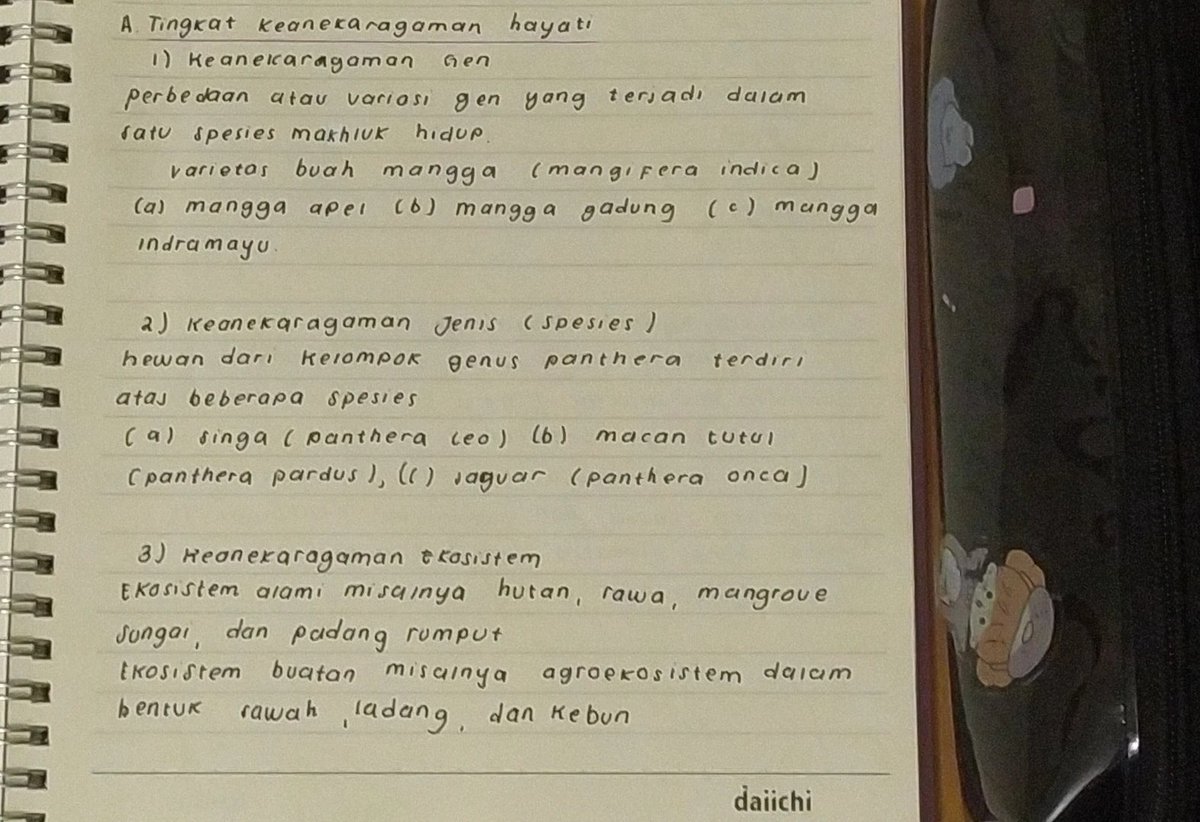 A. Tingkat keanekaragaman hayati
1) Keanekaragaman Gen
perbedaan atau variasi gen yang terjadi dalam
satu spesies makhluk hidup.
varietas buah mangga (mangifera indica)
(a) mangga apel (b) mangga gadung (c) mangga
indramayu.
2) Keanekaragaman Jenis (spesies)
hewan dari kelompok genus panthera terdiri
atas beberapa spesies
(a) singa (panthera leo) (b) macan tutul
(panthera pardus), (c) jaguar (panthera onca)
3) Keanekaragaman Ekosistem
Ekosistem alami misalnya hutan, rawa, mangrove
sungai, dan padang rumput
Ekosistem buatan misalnya agroekosistem dalam
bentuk sawah, ladang, dan kebun
daiichi